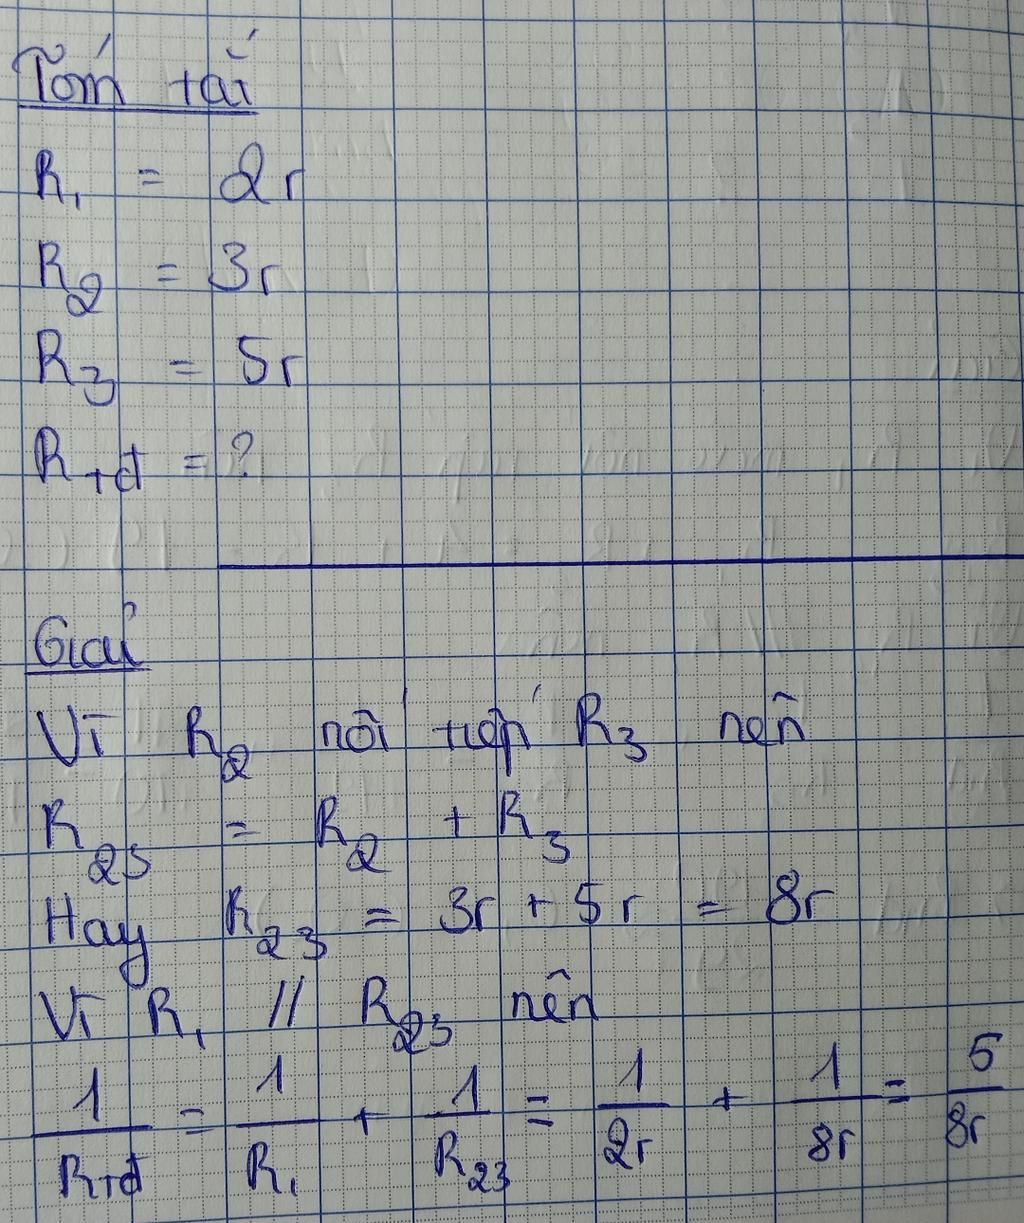 Tóm tắt
R₁ = 2r
R₂ = 3r
R₃ = 5r
R tđ = ?
Giải
Vì R₂ nối tiếp R₃ nên
R₂₃ = R₂ + R₃
Hay R₂₃ = 3r + 5r = 8r
Vì R₁ // R₂₃ nên
1/Rtđ = 1/R₁ + 1/R₂₃ = 1/2r + 1/8r = 5/8r